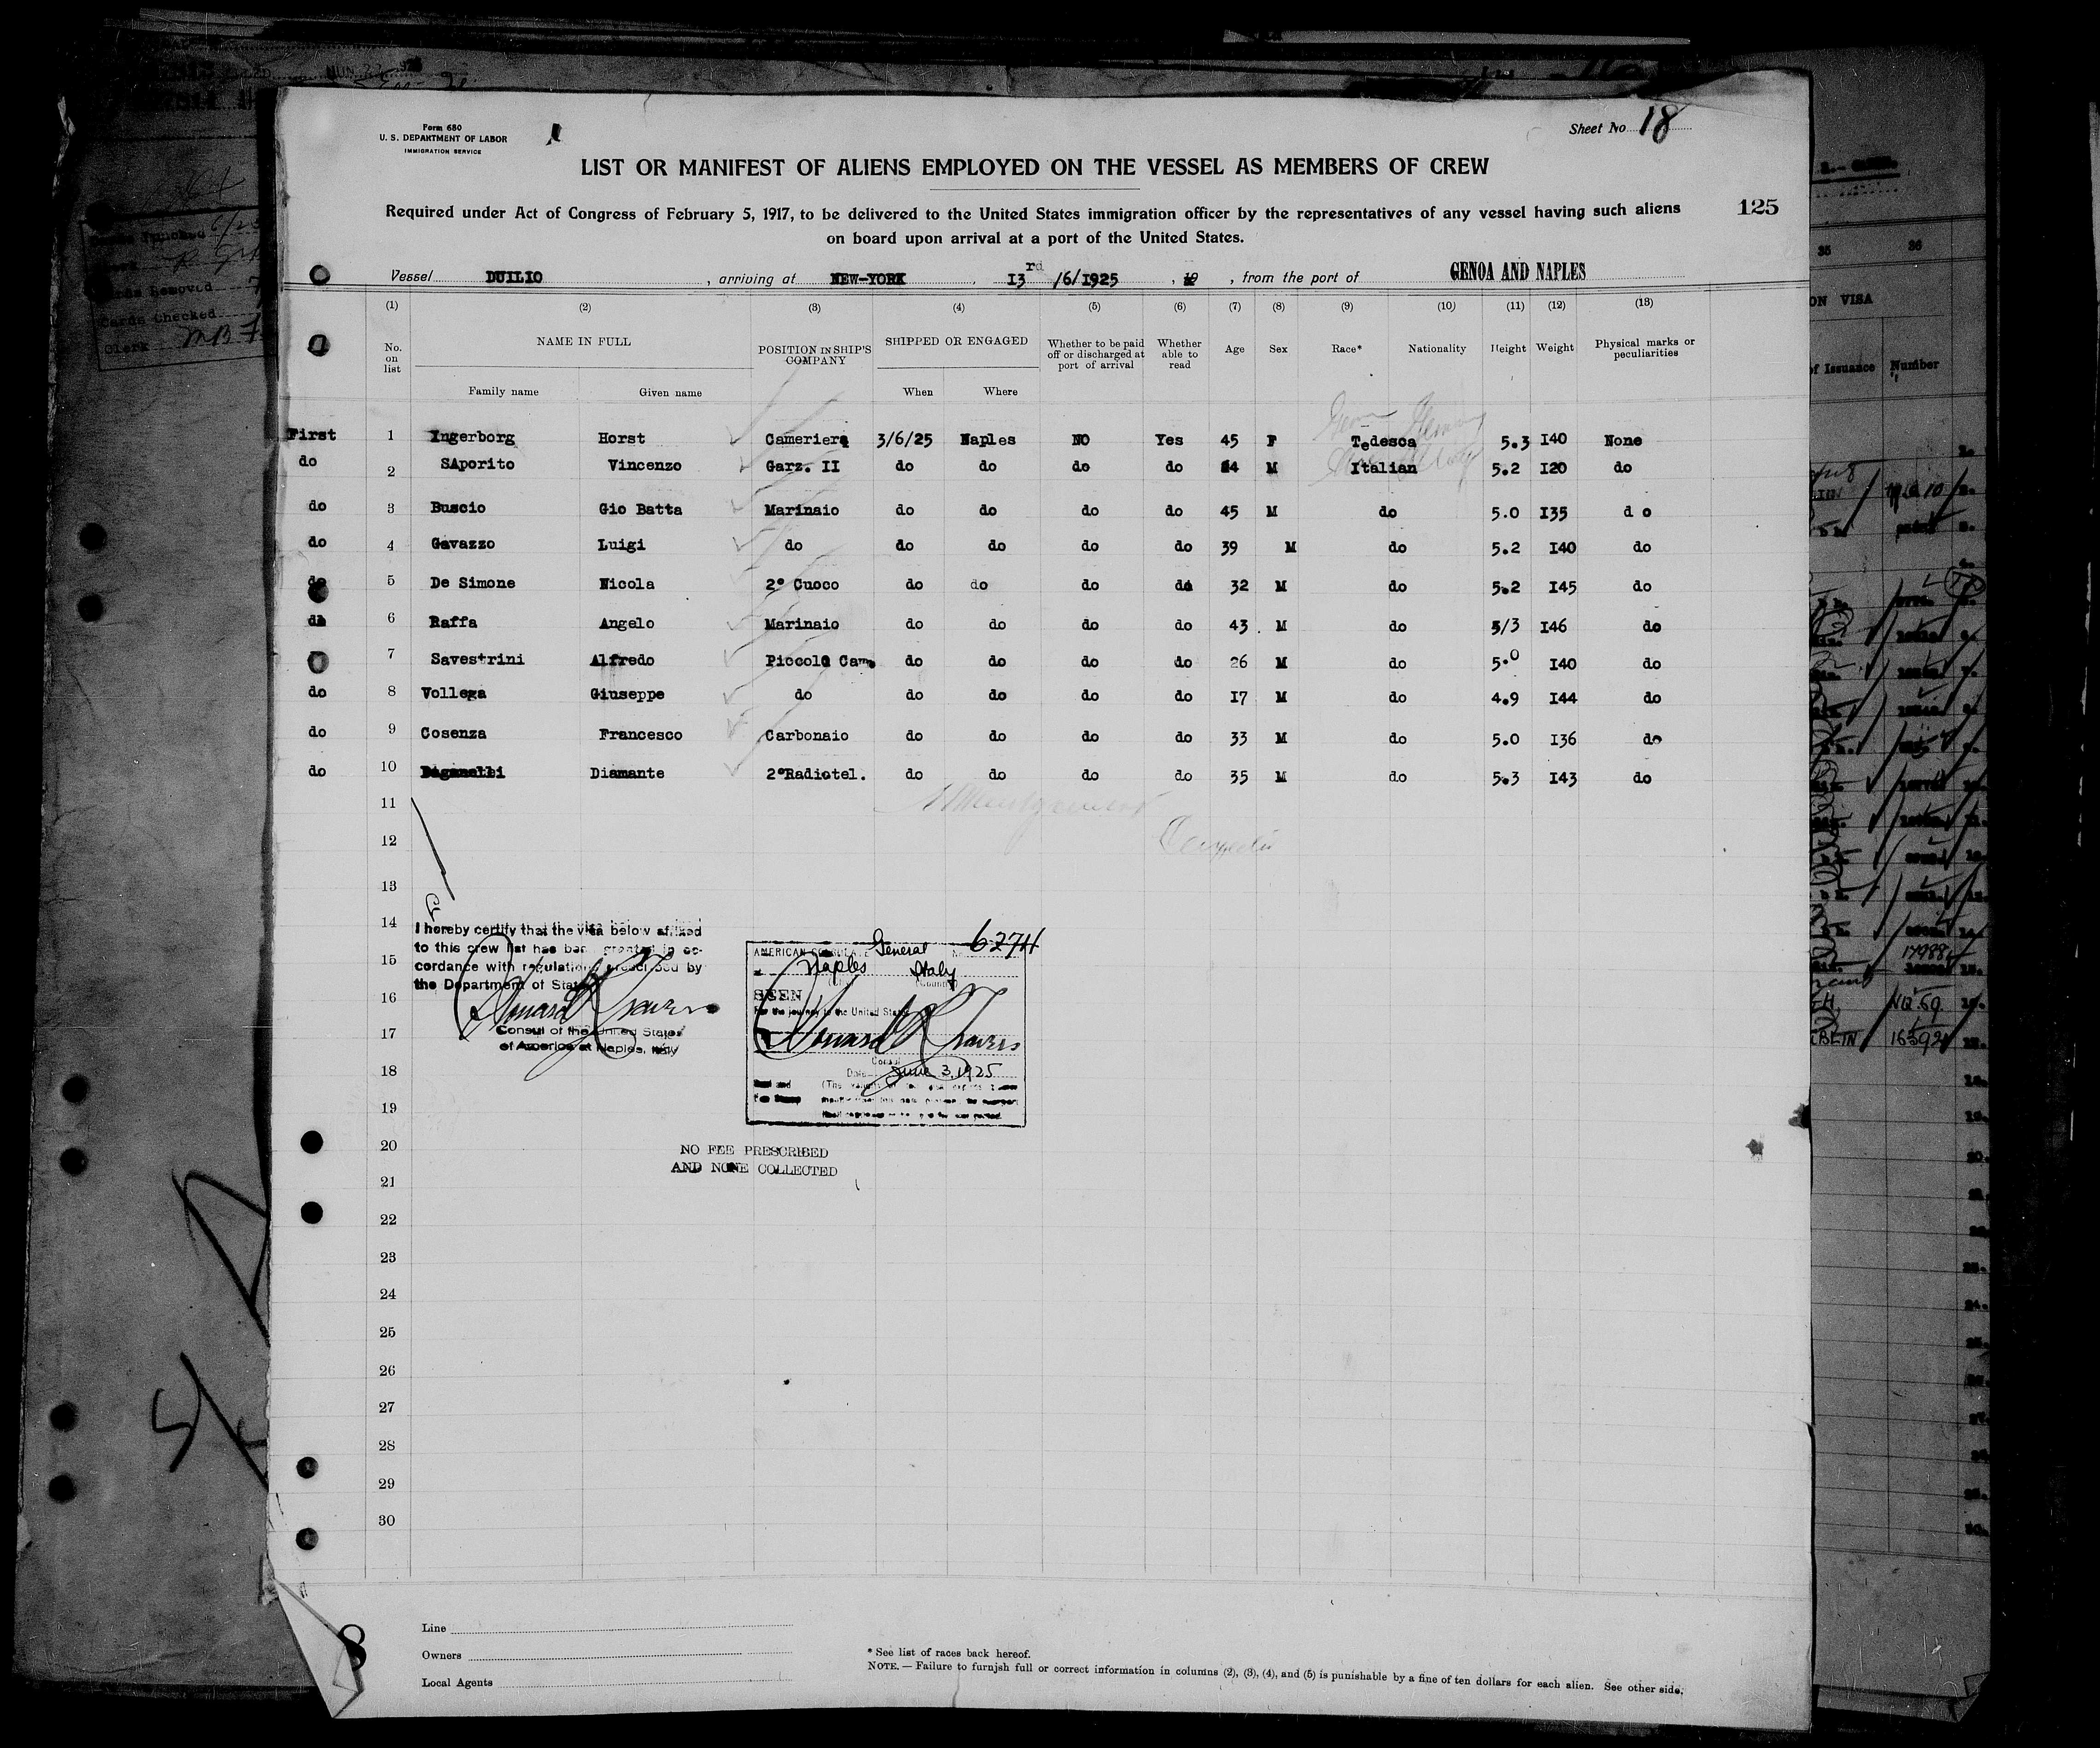 Form 680
U. S. DEPARTMENT OF LABOR
IMMIGRATION SERVICE
Sheet No 18
LIST OR MANIFEST OF ALIENS EMPLOYED ON THE VESSEL AS MEMBERS OF CREW
Required under Act of Congress of February 5, 1917, to be delivered to the United States immigration officer by the representatives of any vessel having such aliens
on board upon arrival at a port of the United States.
125
Vessel DUILIO , arriving at NEW-YORK , I3 rd /6/1925 , 19 , from the port of GENOA AND NAPLES
(1) (2) (3) (4) (5) (6) (7) (8) (9) (10) (11) (12) (13)
No. on list NAME IN FULL POSITION IN SHIP'S COMPANY SHIPPED OR ENGAGED Whether to be paid off or discharged at port of arrival Whether able to read Age Sex Race* Nationality Height Weight Physical marks or peculiarities
Family name Given name When Where
First 1 Ingerborg Horst Cameriera 3/6/25 Naples NO Yes 45 F Tedesca 5.3 I40 None
do 2 SAporito Vincenzo Garz. II do do do do 24 M Italian 5.2 I20 do
do 3 Buscio Gio Batta Marinaio do do do do 45 M do 5.0 I35 d o
do 4 Gavazzo Luigi do do do do do 39 M do 5.2 I40 do
do 5 De Simone Nicola 2° Cuoco do do do do 32 M do 5.2 I45 do
do 6 Raffa Angelo Marinaio do do do do 43 M do 5/3 I46 do
7 Savestrini Alfredo Piccolo Cam do do do do 26 M do 5.0 I40 do
do 8 Vollega Giuseppe do do do do do I7 M do 4.9 I44 do
do 9 Cosenza Francesco Carbonaio do do do do 33 M do 5.0 I36 do
do 10 Diamante 2°Radiotel. do do do do 35 M do 5.3 I43 do
11
12
13
14
15
16
17
18
19
20
21
22
23
24
25
26
27
28
29
30
I hereby certify that the visa below affixed
to this crew list has been granted in ac-
cordance with regulations prescribed by
the Department of State
Consul of the United States
of America at Naples, Italy
6274
AMERICAN CONSULATE General
Naples Italy
SEEN
For the journey to the United States
Consul
Date June 3, 1925
NO FEE PRESCRIBED
AND NONE COLLECTED
Line
Owners
Local Agents
* See list of races back hereof.
NOTE. — Failure to furnjsh full or correct information in columns (2), (3), (4), and (5) is punishable by a fine of ten dollars for each alien. See other side.
8
Cards Removed
Cards Checked
Clerk
ON VISA
35 36
of Issuance Number